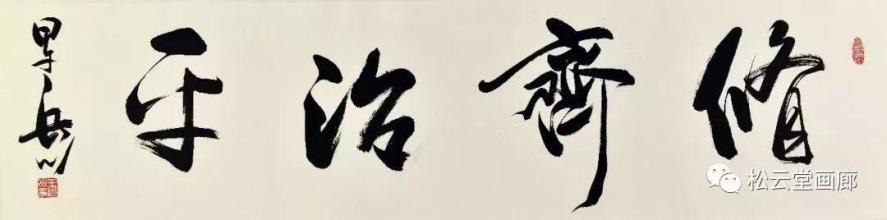 脩齊治平
松云堂画廊